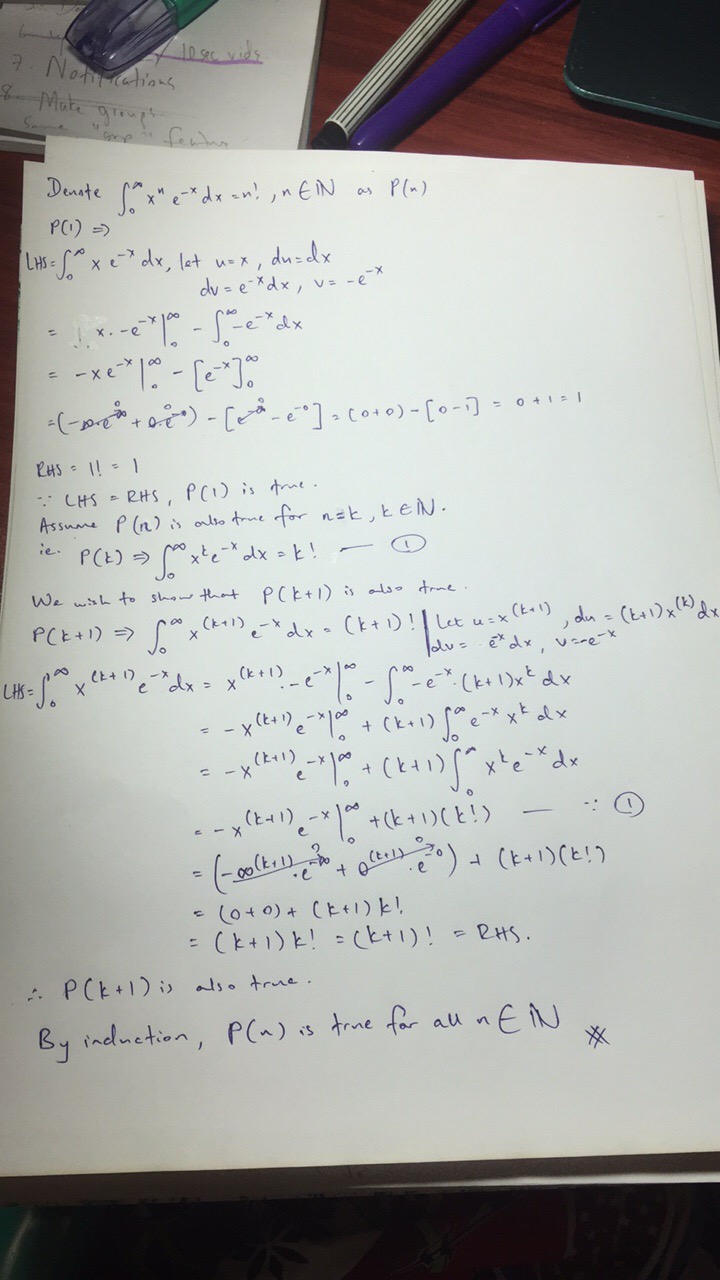 10 sec vids
7. Notifications
8. Make groups
Denote ∫₀^∞ xⁿ e^{-x} dx = n!, n ∈ ℕ as P(n)
P(1) ⇒
LHS = ∫₀^∞ x e^{-x} dx, let u = x, du = dx
dv = e^{-x} dx, v = -e^{-x}
= x · -e^{-x} |₀^∞ - ∫₀^∞ -e^{-x} dx
= -x e^{-x} |₀^∞ - [e^{-x}]₀^∞
= (-∞·e^{-∞} + 0·e^{-0}) - [e^{-∞} - e^{-0}] = (0+0) - [0-1] = 0+1 = 1
RHS = 1! = 1
∵ LHS = RHS, P(1) is true.
Assume P(n) is also true for n=k, k ∈ ℕ.
ie. P(k) ⇒ ∫₀^∞ x^k e^{-x} dx = k! — ①
We wish to show that P(k+1) is also true.
P(k+1) ⇒ ∫₀^∞ x^{(k+1)} e^{-x} dx = (k+1)! | Let u = x^{(k+1)}, du = (k+1)x^{(k)} dx
dv = e^{-x} dx, v = -e^{-x}
LHS = ∫₀^∞ x^{(k+1)} e^{-x} dx = x^{(k+1)} · -e^{-x} |₀^∞ - ∫₀^∞ -e^{-x} · (k+1)x^k dx
= -x^{(k+1)} e^{-x} |₀^∞ + (k+1) ∫₀^∞ e^{-x} x^k dx
= -x^{(k+1)} e^{-x} |₀^∞ + (k+1) ∫₀^∞ x^k e^{-x} dx
= -x^{(k+1)} e^{-x} |₀^∞ + (k+1)(k!) — ∵ ①
= (-∞^{(k+1)} · e^{-∞} + 0^{(k+1)} · e^{-0}) + (k+1)(k!)
= (0+0) + (k+1) k!
= (k+1) k! = (k+1)! = RHS.
∴ P(k+1) is also true.
By induction, P(n) is true for all n ∈ ℕ